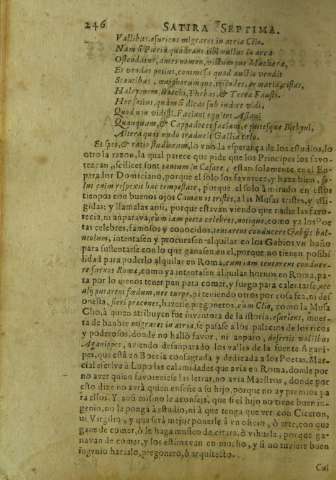 246 SATIRA SEPTIMA.
Vallibus, esuriens migraret in atria Clio.
Nam si Pieria quadrans tibi nullus in arca
Ostendatur, ames nomen, victumque Machæra,
Et vendas potius, commissa quod auctio vendit
Stantibus,
Halcyonem Bacchi, Thebas, & Terea Fausti.
Hoc satius, quàm si dicas sub iudice vidi,
Quod non vidisti. Faciant equites Asiani
Quanquam, & Cappadoces faciant, equitesque Bithyni,
Altera quos nudo traducit Gallia talo.
Et spes, & ratio studiorum, lo vno la esperança de los estudios, lo
otro la razon, la qual parece que pide que los Principes los favo-
rezcan, scilicet sunt tantum in Cæsare, estan solamente en el Em-
perador Domiciano, porque el solo los favorece, y haze bien, so-
lus enim respexit hac tempestate, porque el solo à mirado en estos
tiempos con buenos ojos Camœnas tristes, a las Musas tristes, y affli-
gidas: y llamalas ansi, porque estavan viendo que nadie las favo-
recia, ni amparava, cùm iam poetæ celebres, notique, como ya los Poe-
tas celebres, famosos y conocidos, tentarent conducere Gabijs bal-
neolum, intentassen y procurassen alquilar en los Gabios vn baño
para sustentarse con lo que ganassen en el, porque no tienen possibi-
lidad para poderlo alquilar en Roma,
re furnos Romæ, como ya intentassen alquilar hornos en Roma, pa-
ra por lo menos tener pan para comer, y fuego para calentarse, nec
alij putarent fœdum, nec turpe, ni teniendo otros por cosa fea, ni des-
onesta, fieri præcones, hazerse pregoneros, cum Clio, como la Musa
Clio, à quien atribuyen fue inventora de la istoria, esuriens, muer-
ta de hambre migraret in atria, se passase a los palacios de los ricos
y poderosos, donde no hallò favor, ni amparo, desertis vallibus
Aganippes, aviendo desamparado los valles de la fuente Aganip-
pes, que està en Boecia consagrada y dedicada a los Poetas. Mar-
cial escrive à Lupo las calamidades que avia en Roma, donde por
no aver quien favoreciesse las letras, no avia Maestros, donde por
esto dize no avrà quien enseñe a su hijo, porque no ay premios pa-
ra ellos. Y ansi mismo le aconseja, que si el hijo no tiene buen in-
genio, no la ponga à estudio, ni à que tenga que ver con Ciceron,
ni Virgilio, y que serà mejor ponerle à vn oficio, ò arte, con que
gane de comer, ò le haga musico de citara, ò vihuela, porque ga-
navan de comer, y los estimavan en mucho, y si no tuviere buen
ingenio hazialo, pregonero, ò arquitecto.